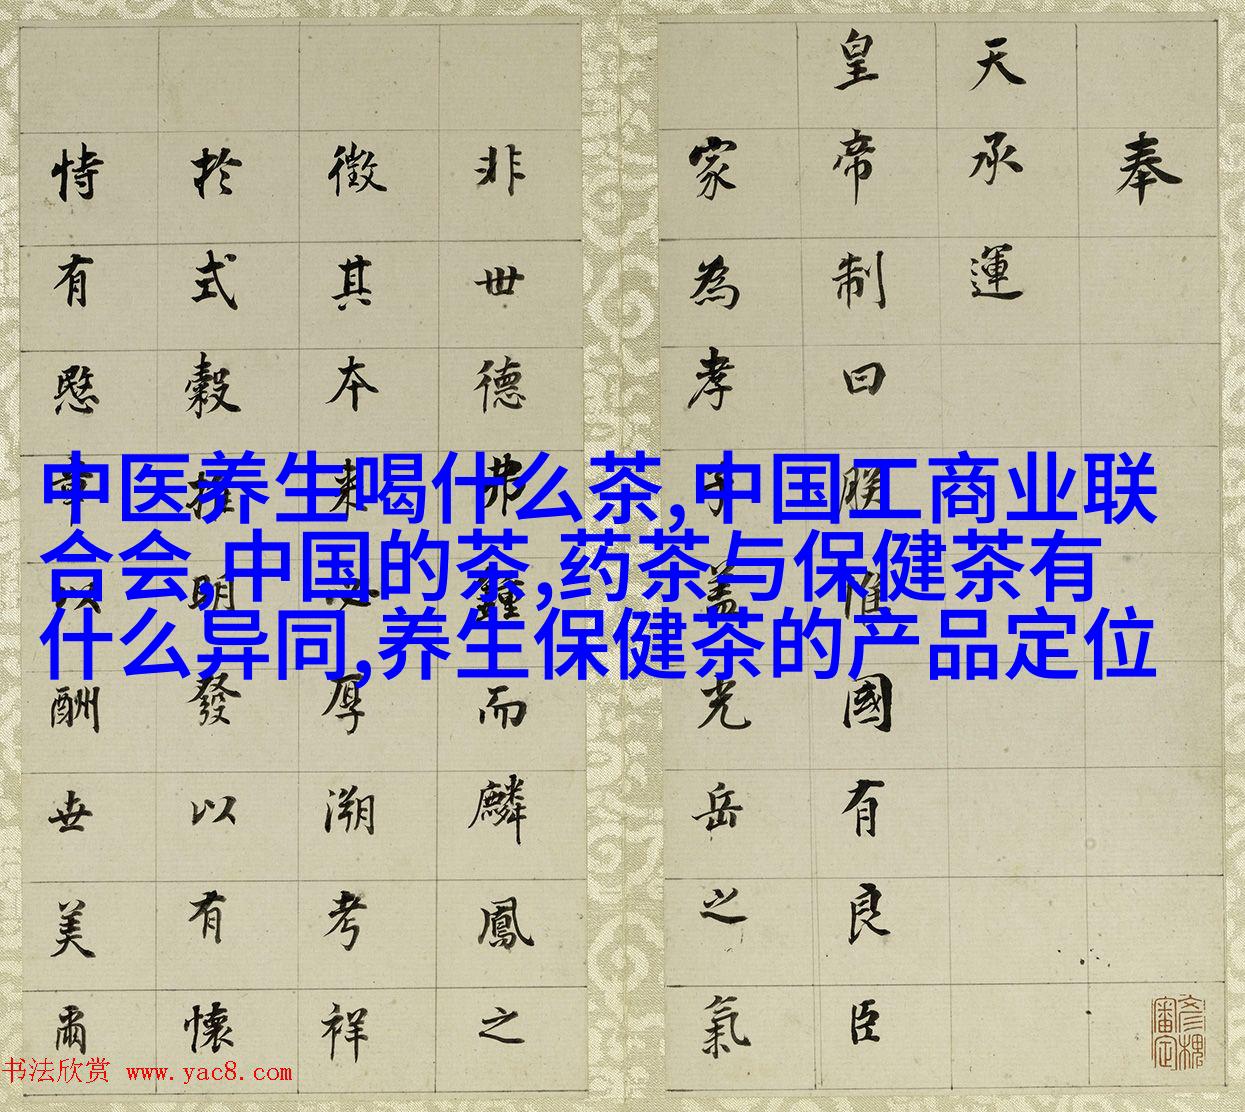 中医养生喝什么茶,中国工商业联
合会,中国的茶,药茶与保健茶有
什么异同,养生保健茶的产品定位
奉
天承運
皇帝制曰朕惟國有良臣
家為孝子蓋光岳之氣
非世德弗鍾而麟鳳之
徵其本来必厚溯考祥
於式穀推明發以有懷
恃有愍章以酬世美爾
彥槐審定
书法欣赏 www.yac8.com